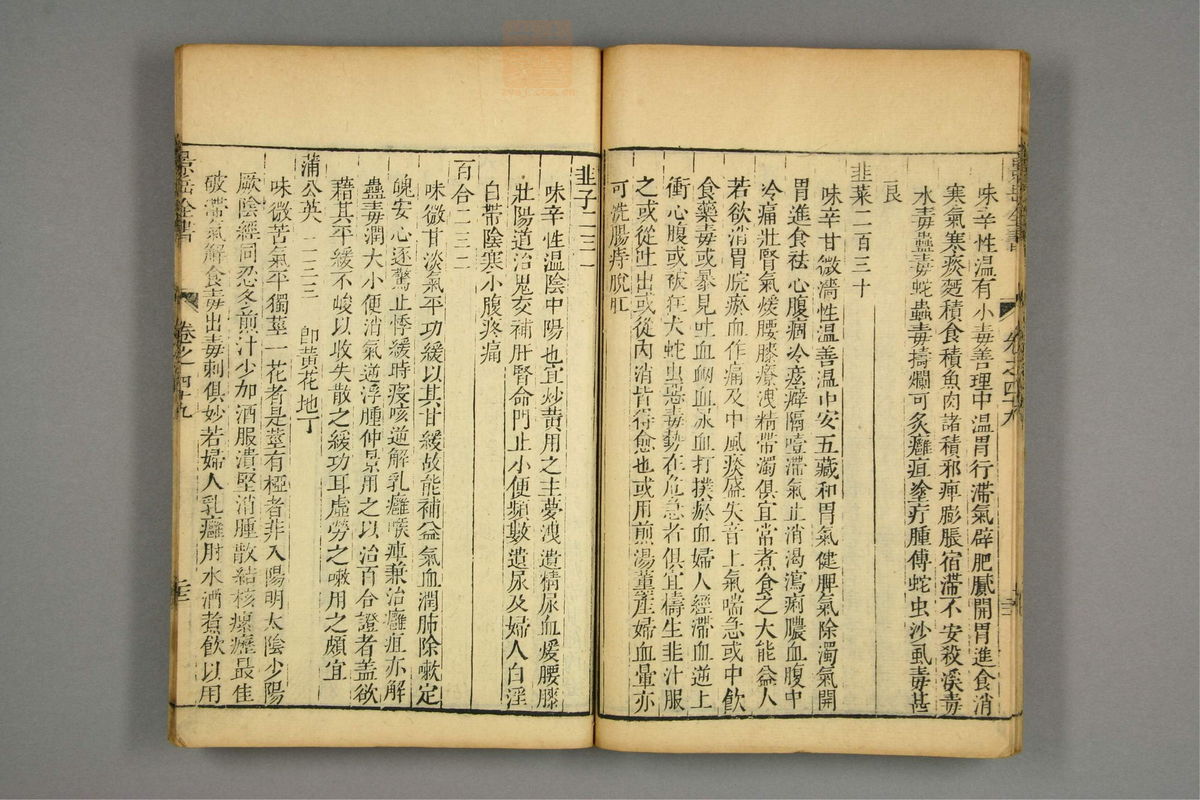 味辛性温有小毒善理中温胃行滯氣辟肥膩開胃進食消
寒氣寒痰麪積食積魚肉諸積邪痺膨脹宿滯不安殺溪毒
水毒蠱毒蛇蟲毒擣爛可炙癰疽塗疔腫傅蛇虫沙虱毒甚
良
韭菜二百三十
味辛甘微濇性温善温中安五藏和胃氣健脾氣除濁氣開
胃進食祛心腹痼冷痃癖隔噎滯氣止消渴瀉痢膿血腹中
冷痛壯腎氣煖腰膝療洩精帶濁俱宜常煮食之大能益人
若欲消胃脘瘀血作痛及中風痰盛失音上氣喘急或中飲
食藥毒或暴見吐血衂血尿血打撲瘀血婦人經滯血逆上
衝心腹或被狂犬蛇虫惡毒勢在危急者俱宜擣生韭汁服
之或從吐出或從内消皆得愈也或用煎湯薰產婦血暈亦
可洗腸痔脫肛
韭子二三一
味辛性温陰中陽也宜炒黄用之主夢洩遺精尿血煖腰膝
壯陽道治鬼交補肝腎命門止小便頻數遺尿及婦人白淫
白帶陰寒小腹疼痛
百合二三二
味微甘淡氣平功緩以其甘緩故能補益氣血潤肺除嗽定
魄安心逐驚止悸緩時疫咳逆解乳癰喉痺兼治癰疽亦解
蠱毒潤大小便消氣逆浮腫仲景用之以治百合證者盖欲
藉其平緩不峻以收失散之緩功耳虛勞之嗽用之頗宜
蒲公英 二三三 即黄花地丁
味微苦氣平獨莖一花者是莖有椏者非入陽明太陰少陽
厥陰經同忍冬煎汁少加酒服潰堅消腫散結核瘰癧最佳
破滯氣解食毒出毒刺俱妙若婦人乳癰用水酒煮飲以用
景岳全書 卷之四十九